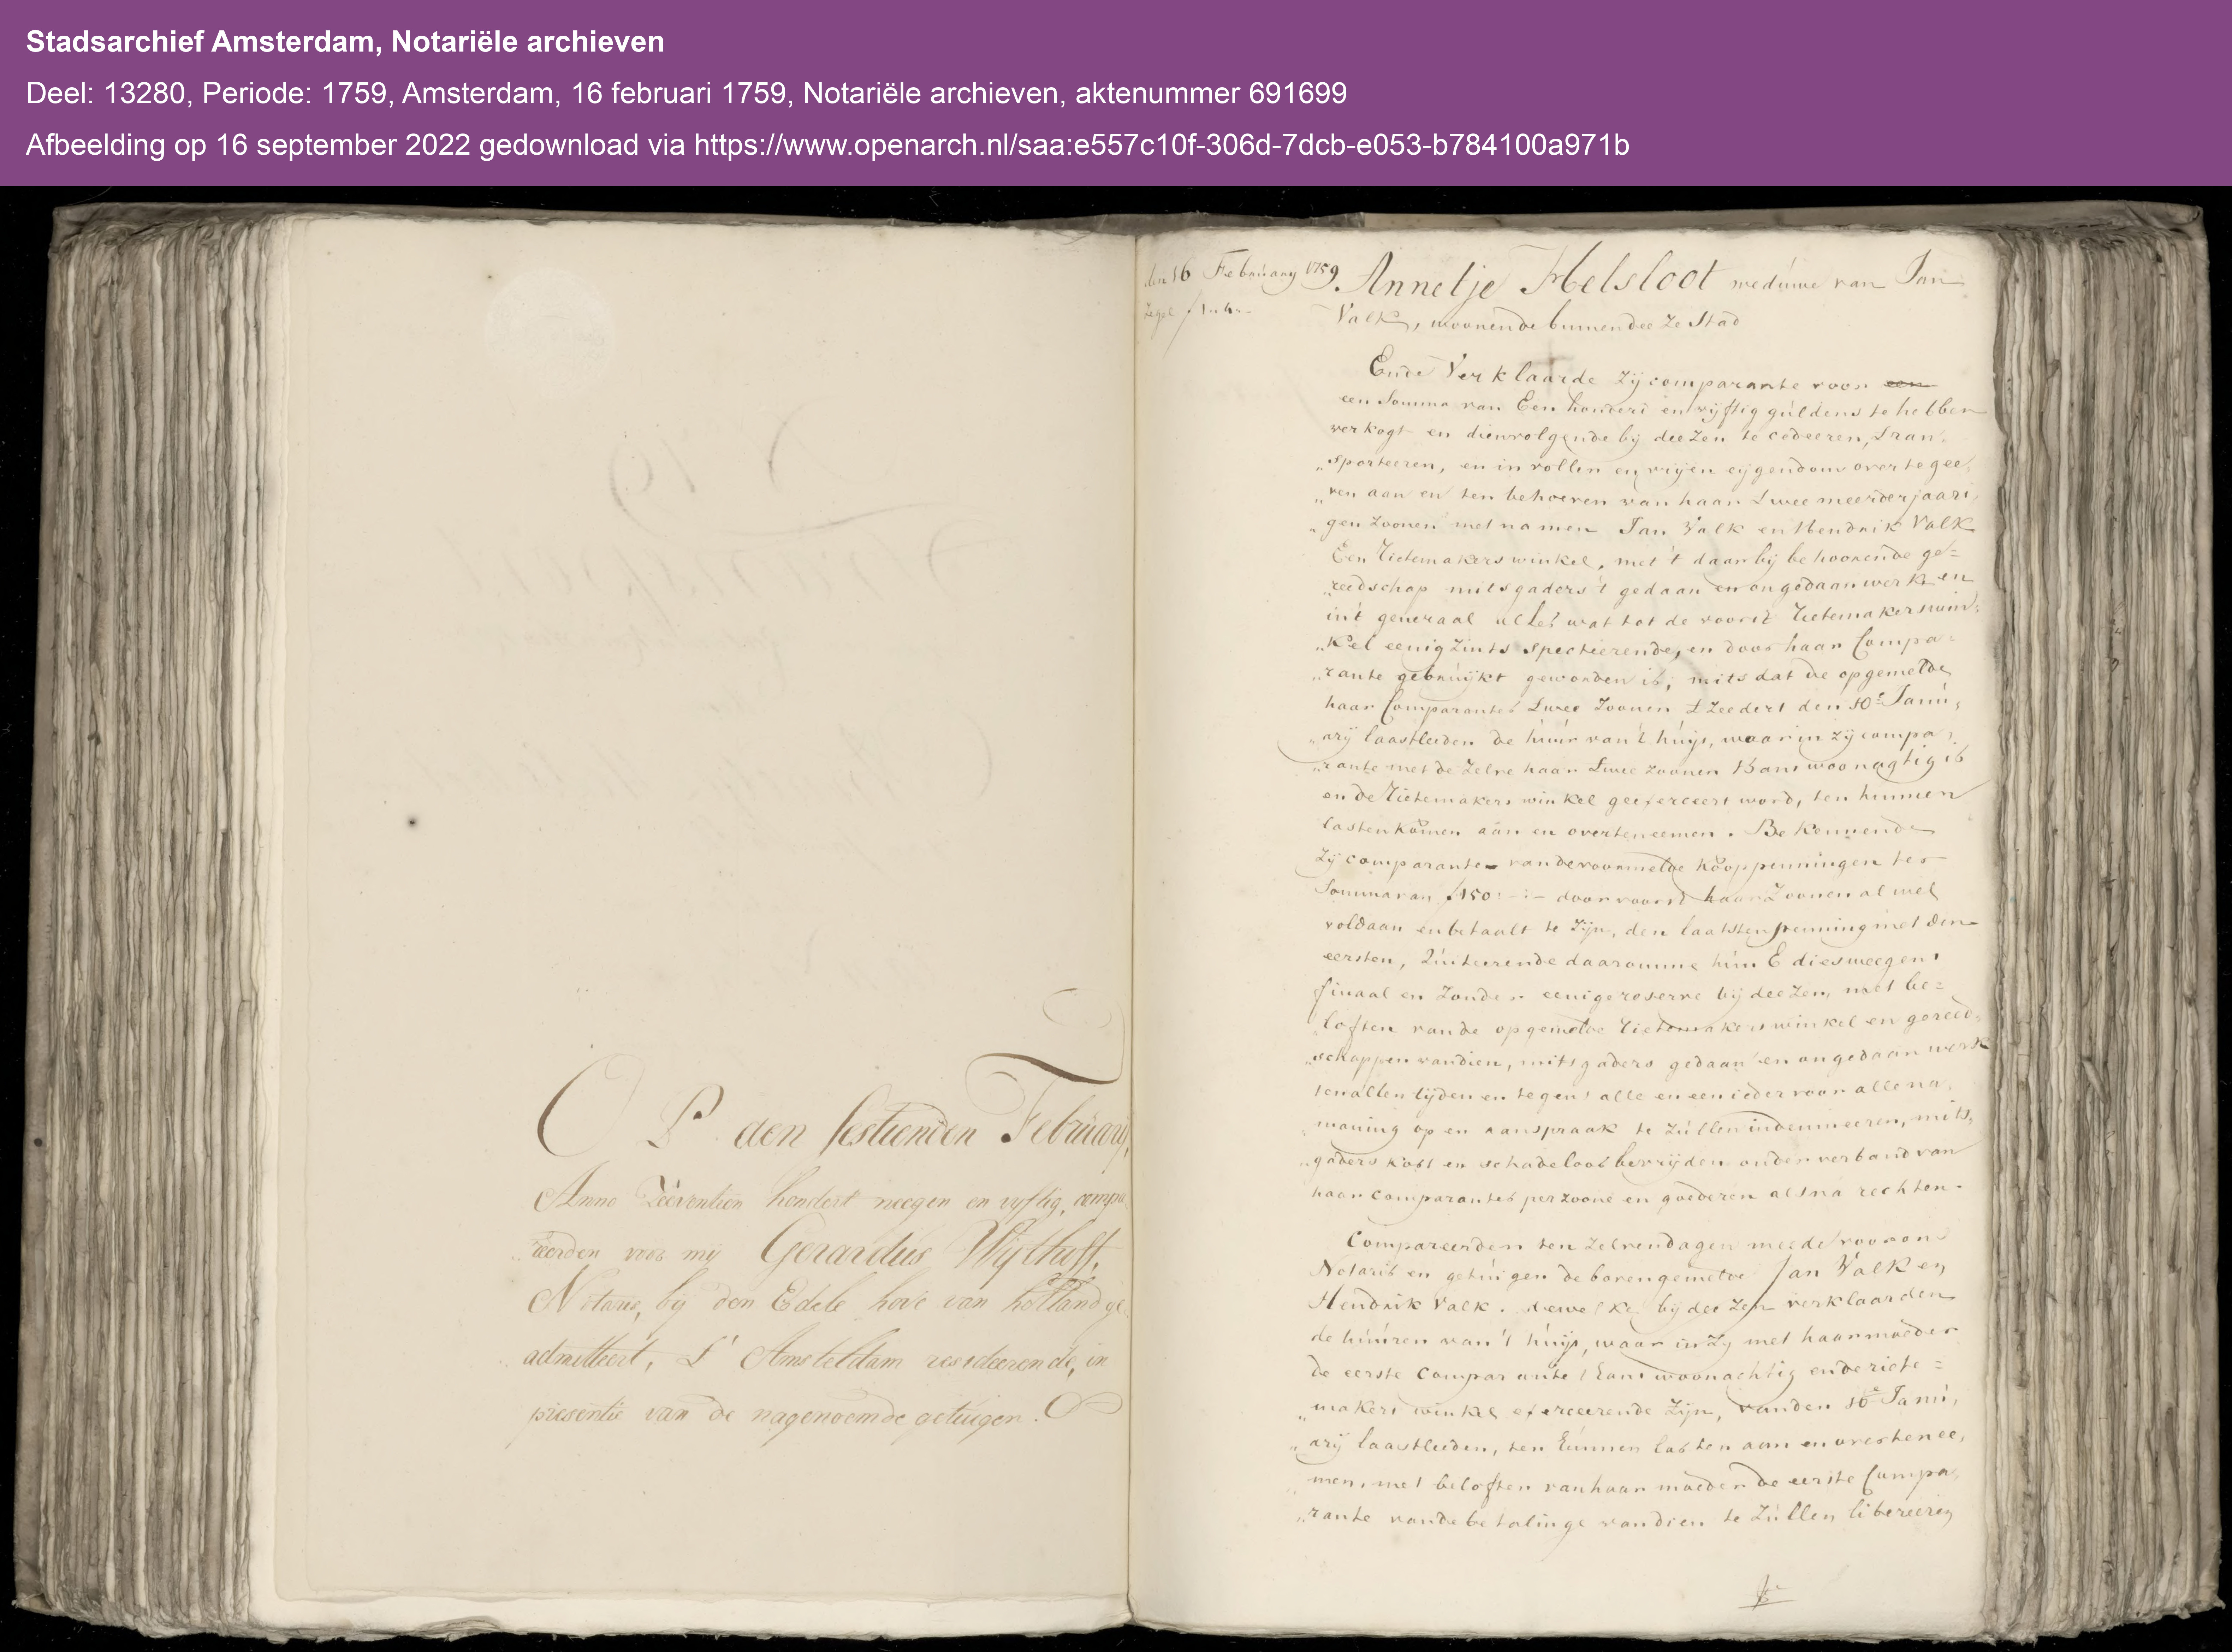 Stadsarchief Amsterdam, Notariële archieven
Deel: 13280, Periode: 1759, Amsterdam, 16 februari 1759, Notariële archieven, aktenummer 691699
Afbeelding op 16 september 2022 gedownload via https://www.openarch.nl/saa:e557c10f-306d-7dcb-e053-b784100a971b
OP den sestienden February,
Anno Zeeventien hondert neegen en vyftig, compa
„reerden voor mij Gerardus Wijthoff,
Notaris, bij den Edele hove van holland ge
admitteert, t' Amsteldam resideerende, in
presentie van de nagenoemde getuigen.
den 16 February 1759.
Zegel
Annetje Helsloot weduwe van Jan
Valk, woonende binnen deeze Stad
Ende Verklaarde Zij comparante voor een
een Somma van Een hondert en vijftig guldens te hebben
verkogt en dienvolgende bij deezen te cedeeren, tran,
„sporteeren, en in vollen en vrijen eijgendom over te gee,
„ven aan en ten behoeven van haar twee meerderjaari,
„gen Zoonen met namen Jan Valk en Hendrik Valk
Een Rietemakers winkel, met 't daar bij behoorende ge=
„reedschap mitsgaders 't gedaan en ongedaan werk en
in 't generaal alles wat tot de voorsz Rietemakers win,
„kel eenigzints specteerende, en door haar Compa=
„rante gebruijkt geworden is; mits dat de opgemelde
haar Comparantes twee Zoonen t zeedert den 10e Janu,
„arij laastleeden de huur van 't huijs, waar in zij compa,
„rante met de zelve haar twee zoonen thans woonagtig is
en de Rietemakers winkel geexerceert word, ten hunnen
lasten komen aan en overteneemen. Bekennende
Zij comparante van de voormelde kooppenningen ter
Somma van ƒ150:-:- door voorsz haar Zoonen al wel
voldaan en betaalt te Zijn, den laatsten penning met den
eersten, Quiteerende daaromme hun E diesweegen
finaal en Zonder eenige reserve bij deezen, met be=
„loften van de opgemelde Rietemakers winkel en gereed,
„schappen van dien, mitsgaders gedaan en ongedaan werk
ten allen tijden en tegens alle en een ieder voor alle na,
„maning op en aanspraak te zullen indemneeren, mits,
„gaders kost en schadeloos bevrijden onder verband van
haar comparantes perzoone en goederen als na rechten.
Compareerden ten zelven dagen meede voor ons
Notaris en getuigen de bovengemelde Jan Valk en
Hendrik Valk. dewelke bij deezen verklaarden
de huuren van 't huijs, waar in Zy met haar moeder
de eerste Comparante thans woonachtig en de riete=
„makers winkel exerceerende Zijn, van den 10e Janu,
„arij laastleeden, ten hunnen lasten aan en overtenee,
„men, met beloften van haar moeder de eerste Compa,
„rante van de betalinge van dien te Zullen libereeren